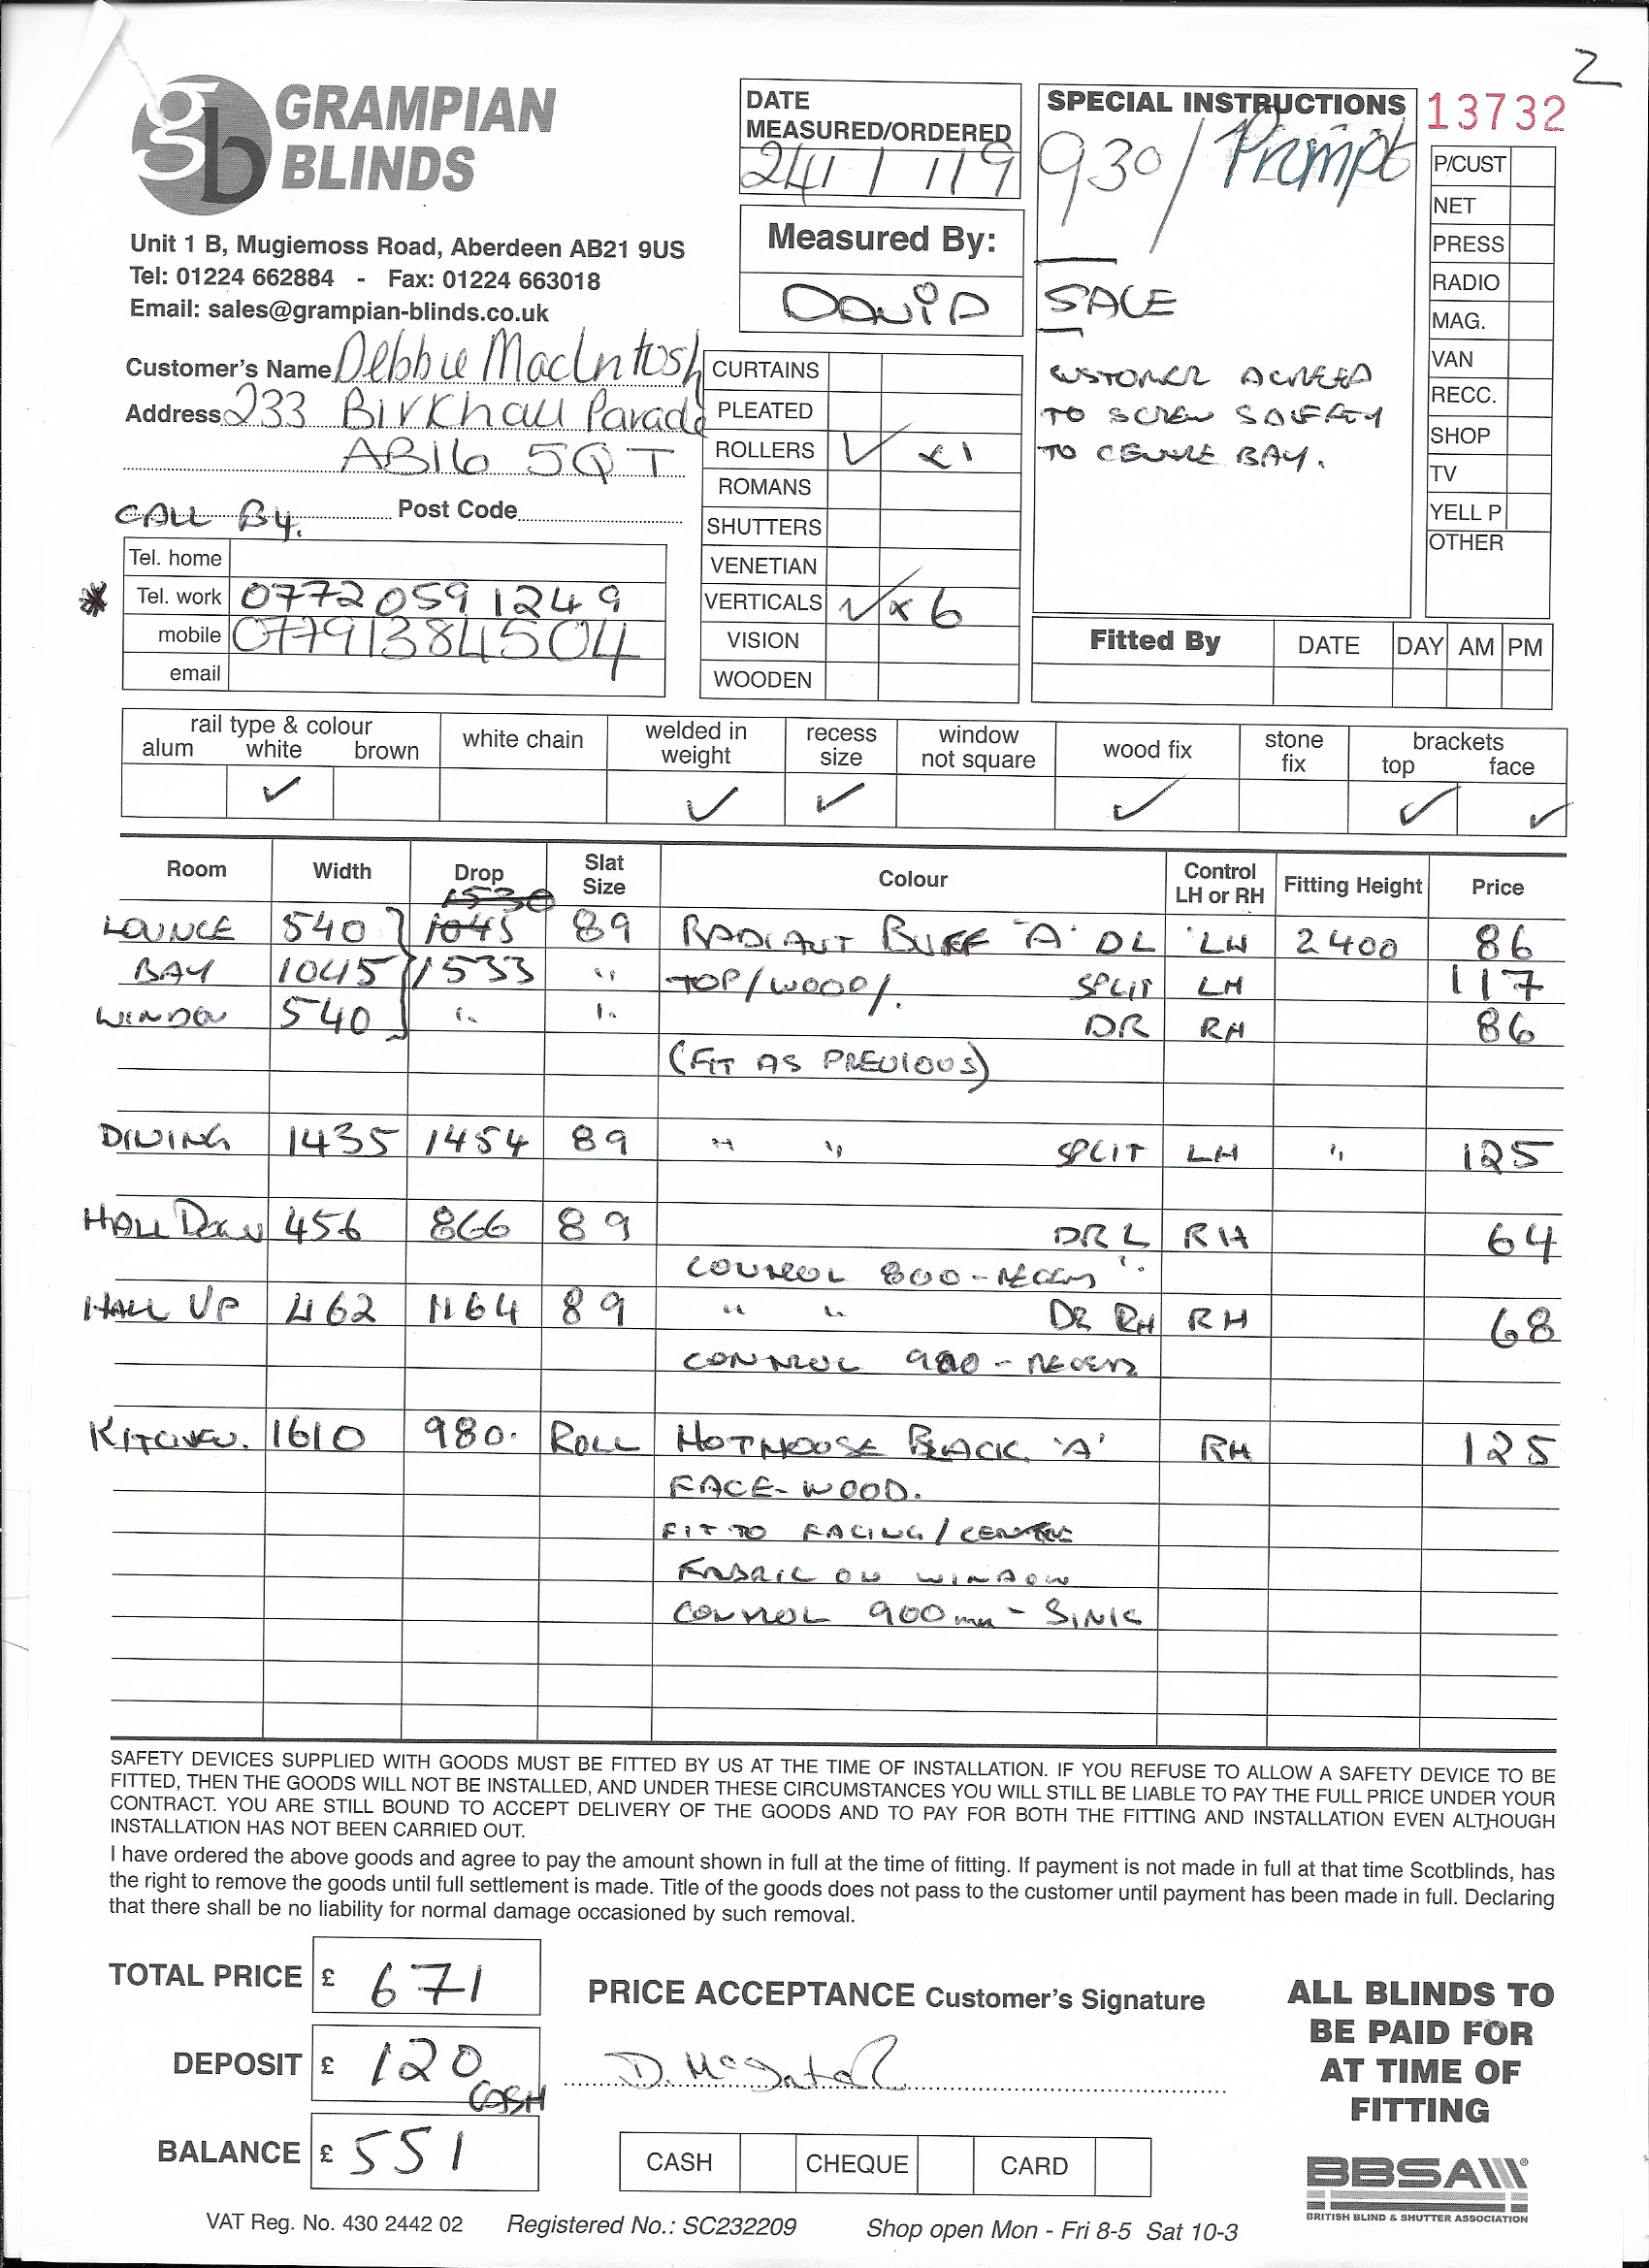 2
GRAMPIAN
BLINDS
Unit 1 B, Mugiemoss Road, Aberdeen AB21 9US
Tel: 01224 662884 - Fax: 01224 663018
Email: sales@grampian-blinds.co.uk
DATE
MEASURED/ORDERED
24/1/19
Measured By:
DAViD
SPECIAL INSTRUCTIONS
930/ Prompt
SALE
CUSTOMER AGREED
TO SCREW SAFETY
TO CENTRE BAY.
13732
P/CUST
NET
PRESS
RADIO
MAG.
VAN
RECC.
SHOP
TV
YELL P
OTHER
Customer's Name Debbie MacIntosh
Address 233 Birkhall Parade
AB16 5QT
CALL By. Post Code
Tel. home
* Tel. work 0772 059 1249
mobile 07791384504
email
CURTAINS
PLEATED
ROLLERS ✓ x1
ROMANS
SHUTTERS
VENETIAN
VERTICALS ✓ x 6
VISION
WOODEN
Fitted By DATE DAY AM PM
rail type & colour
alum white brown
white chain
welded in weight
recess size
window not square
wood fix
stone fix
brackets
top face
✓ ✓ ✓ ✓ ✓ ✓
Room Width Drop Slat Size Colour Control LH or RH Fitting Height Price
1530
LOUNGE 540 1045 89 RADIANT BUFF 'A' DL LH 2400 86
BAY 1045 1533 " TOP/WOOD/. SPLIT LH 117
WINDOW 540 " " DR RH 86
(FIT AS PREVIOUS)
DINING 1435 1454 89 " " SPLIT LH " 125
HALL DOWN 456 866 89 DR L RH 64
CONTROL 800 - RECESS "
HALL UP 462 1164 89 " " DR RH RH 68
CONTROL 900 - RECESS
KITCHEN. 1610 980. ROLL HOTHOUSE BLACK 'A' RH 125
FACE - WOOD.
FIT TO FACING / CENTRE
FABRIC ON WINDOW
CONTROL 900mm - SINK
SAFETY DEVICES SUPPLIED WITH GOODS MUST BE FITTED BY US AT THE TIME OF INSTALLATION. IF YOU REFUSE TO ALLOW A SAFETY DEVICE TO BE
FITTED, THEN THE GOODS WILL NOT BE INSTALLED, AND UNDER THESE CIRCUMSTANCES YOU WILL STILL BE LIABLE TO PAY THE FULL PRICE UNDER YOUR
CONTRACT. YOU ARE STILL BOUND TO ACCEPT DELIVERY OF THE GOODS AND TO PAY FOR BOTH THE FITTING AND INSTALLATION EVEN ALTHOUGH
INSTALLATION HAS NOT BEEN CARRIED OUT.
I have ordered the above goods and agree to pay the amount shown in full at the time of fitting. If payment is not made in full at that time Scotblinds, has
the right to remove the goods until full settlement is made. Title of the goods does not pass to the customer until payment has been made in full. Declaring
that there shall be no liability for normal damage occasioned by such removal.
TOTAL PRICE £ 671
DEPOSIT £ 120 CASH
BALANCE £ 551
PRICE ACCEPTANCE Customer's Signature
CASH CHEQUE CARD
ALL BLINDS TO
BE PAID FOR
AT TIME OF
FITTING
BBSA
BRITISH BLIND & SHUTTER ASSOCIATION
VAT Reg. No. 430 2442 02 Registered No.: SC232209 Shop open Mon - Fri 8-5 Sat 10-3